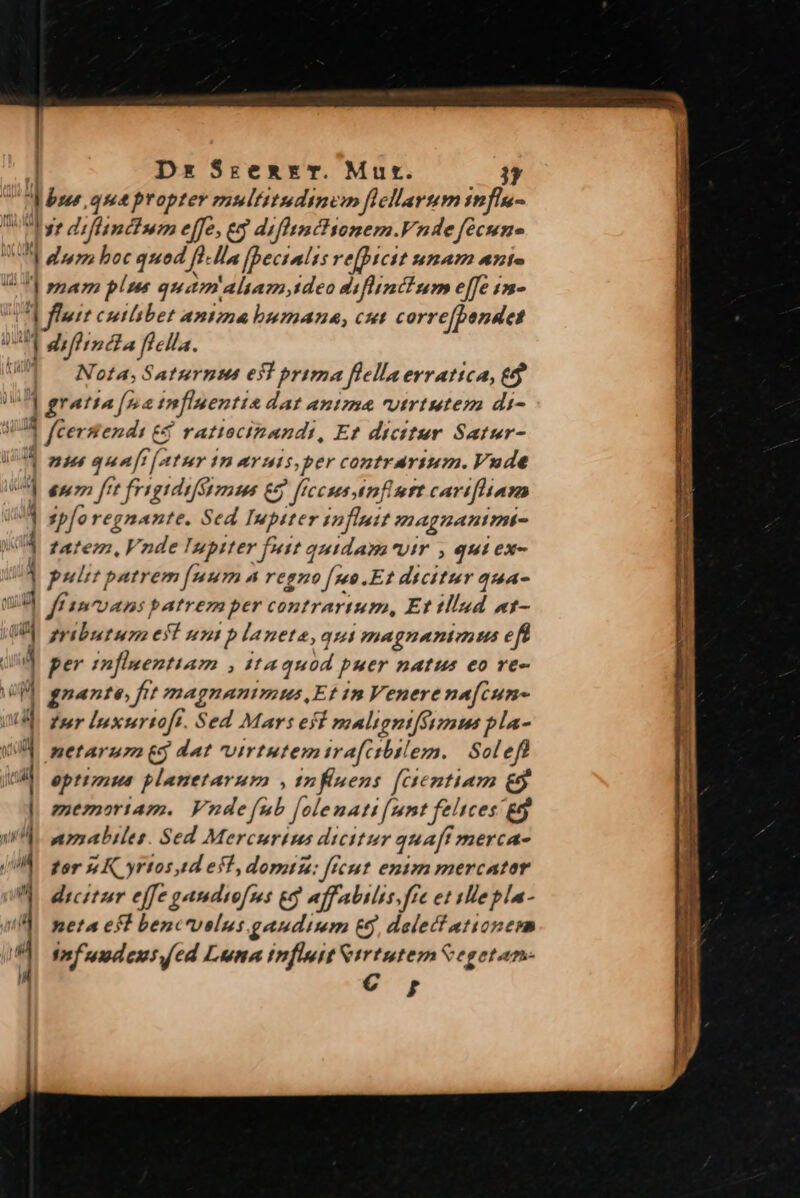 De Secret. Mul. 37
bus, quæ propter multitudinem ſtellarum influ-
it diſtinctum eſſe, & diſtinctionem. Vnde ſecun-
dum hoc quod ſtella ſpecialis reſpicit unam ani-
mam plus quàm aliam, ideo diſtinctum eſſe in-
fluit cuilibet anima humana, cui correſpondet
diſtincta ſtella.
Nota, Saturnus eſt prima ſtella erratica, &
gratia ſua influentiæ dat animæ virtutem di-
ſcernendi & ratiocinandi, Et dicitur Satur-
nus quaſi ſatur in aruis, per contrarium. Vnde
cum ſit frigidiſſimus & ſiccus, influit cariſtiam
ipſo regnante. Sed Iupiter influit magnanimi-
tatem, Vnde Iupiter fuit quidam vir, qui ex-
pulit patrem ſuum à regno ſuo. Et dicitur qua-
ſi iuvans patrem per contrarium, Et illud at-
tributum eſt uni planetæ, qui magnanimus eſt
per influentiam, ita quòd puer natus eo re-
gnante, ſit magnanimus, Et in Venere naſcun-
tur luxurioſi. Sed Mars eſt maligniſſimus pla-
netarum & dat virtutem iraſcibilem. Sol eſt
optimus planetarum, influens ſcientiam &
memoriam. Vnde ſub ſole nati ſunt felices &
amabiles. Sed Mercurius dicitur quaſi merca-
tor & Kyrios, id eſt, domi&: ſicut enim mercator
dicitur eſſe gaudioſus & affabilis, ſic et ille pla-
neta eſt benevolus gaudium & delectationem
infundens, ſed Luna influit virtutem vegetam-
C 5